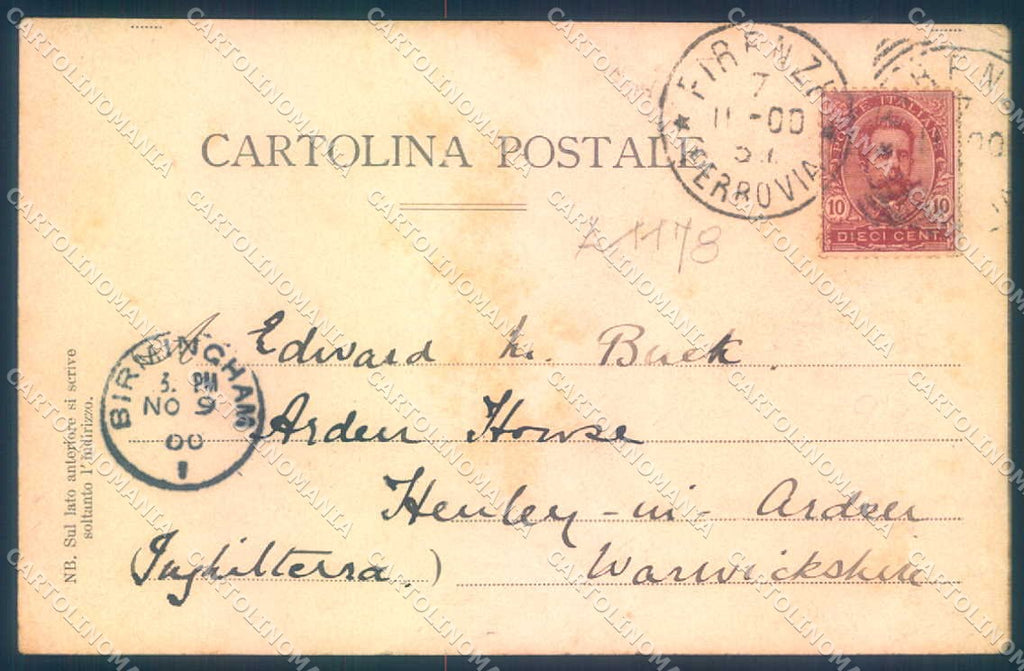 CARTOLINA POSTALE
FIRENZE
7
11-00
FERROVIA
POSTE ITALIANE
10 10
DIECI CENT
Z 1178
BIRMINGHAM
3. PM
NO 9
00
1
Edward M. Buck
Arden House
Henley-in-Arden
(Inghilterra.) Warwickshire
NB. Sul lato anteriore si scrive
soltanto l'indirizzo.
CARTOLINOMANIA